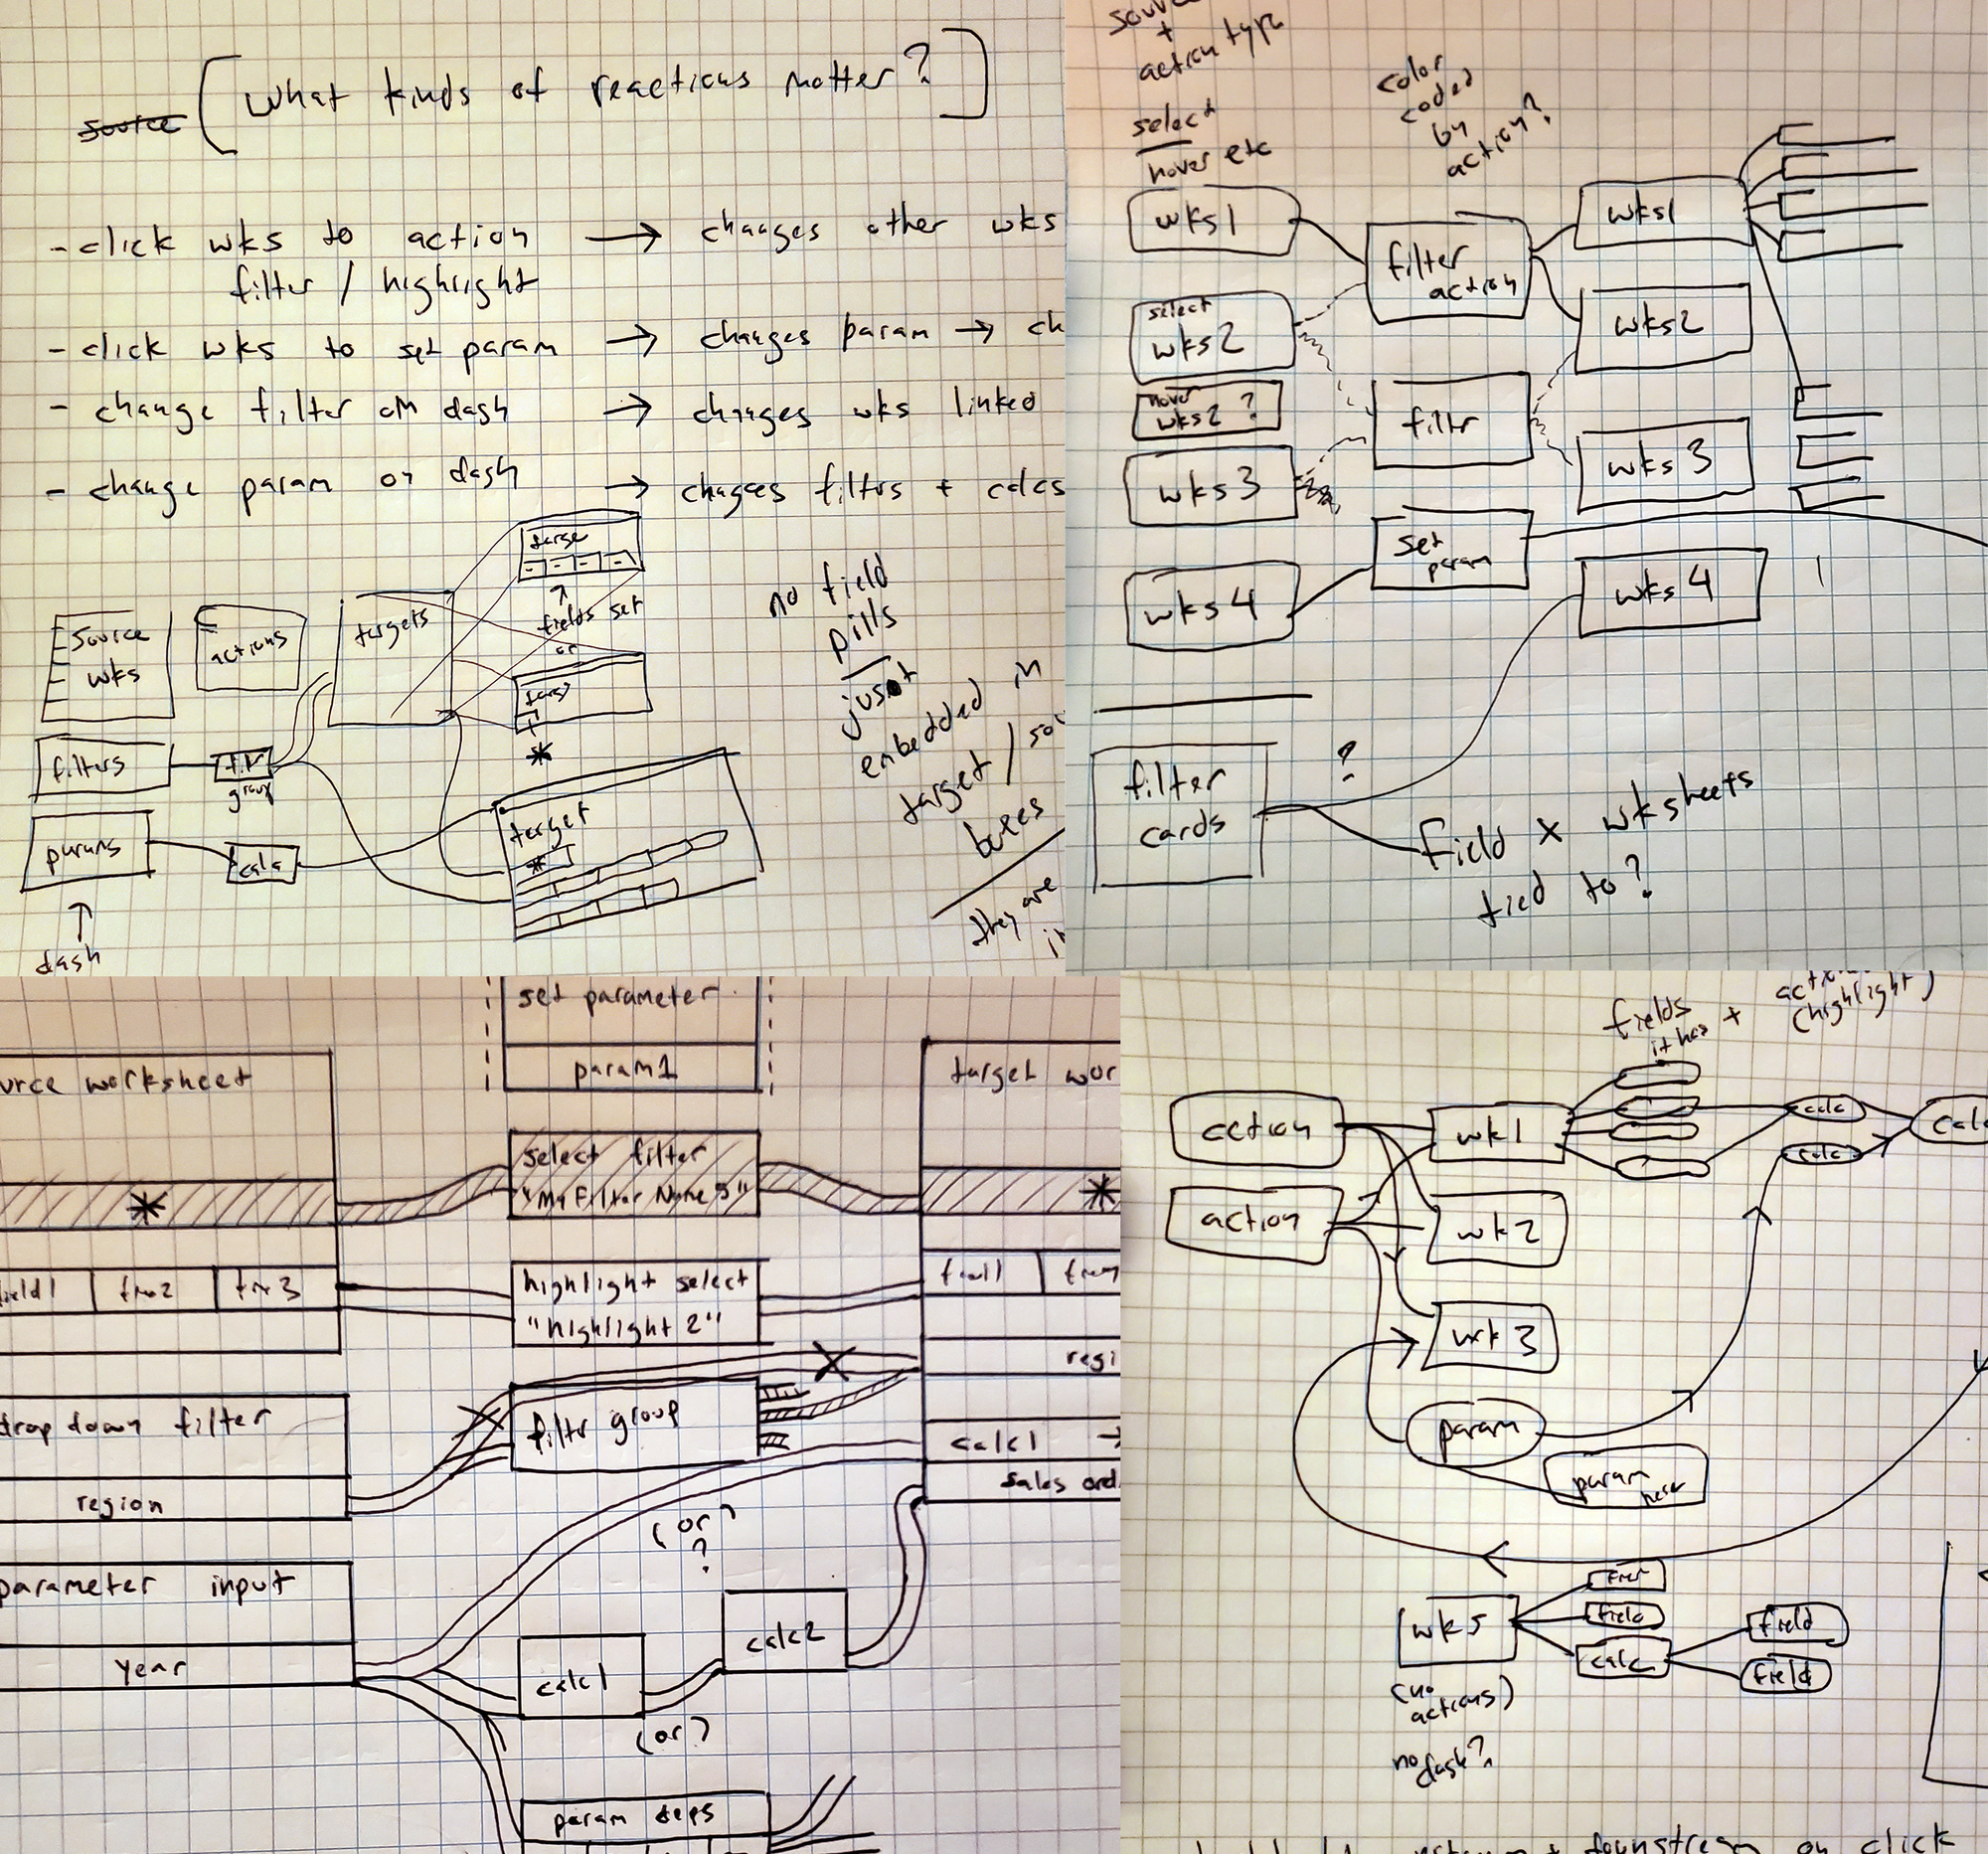 source
What kinds of reactions matter?
- click wks to action → changes other wks
filter / highlight
- click wks to set param → changes param → ch
- change filter on dash → changes wks linked
- change param on dash → changes filters + calcs
source
wks
actions
targets
targe
fields set
or
targ
*
filters
group
params
calc
target
*
dash
no field
pills
just
embedded in
target / sou
boxes
they are
in
source
+
action type
select
hover etc
color
coded
by
action?
wks1
select
wks2
hover
wks2 ?
wks3
wks4
filter
action
filtr
set
param
wks1
wks2
wks3
wks4
filter
cards
?
field x wksheets
tied to?
set parameter
param1
urce worksheet
*
select filter
target wor
*
field1
highlight select
"highlight 2"
drop down filter
region
filtr group
regi
calc1 →
sales ord
parameter input
year
(or?
?
calc1
calc2
(or?)
param deps
fields
it has
+
(highlight)
action
action
wk1
wk2
wk3
calc
calc
calc
param
param
wk5
field
calc
field
field
(no
actions)
no
dash?
downstream on click